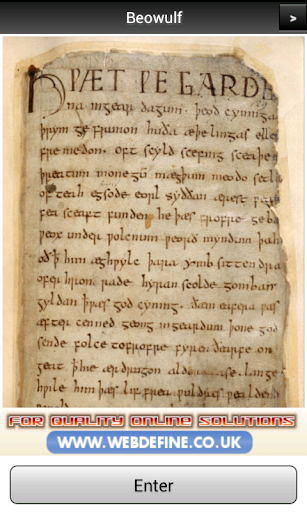 Beowulf
>
HǷÆT ǷE GARDE
na ingear dagum. þeod cyninga
þrym ge frunon huða æþelingas elle
fremedon. oft scyld scefing sceaþe
þreatum monegū mægþum meodo setla
of teah egsode eorl syððan ærest
fea sceaft funden he þæs frofre geba
ƿeox under ƿolcnum ƿeorð myndum þah
oð þ him æghƿylc þara ymb sittendra
ofer hron rade hyran scolde gomban
gyldan þ ƿæs god cyning. ðæm eafera ƿæs
æfter cenned geong in geardum þone god
sende folce tofrofre fyren ðearfe on
geat þ hie ær drugon aldor ase. lange
hƿile him þæs lif frea ƿuldres ƿealdend
FOR QUALITY ONLINE SOLUTIONS
WWW.WEBDEFINE.CO.UK
Enter